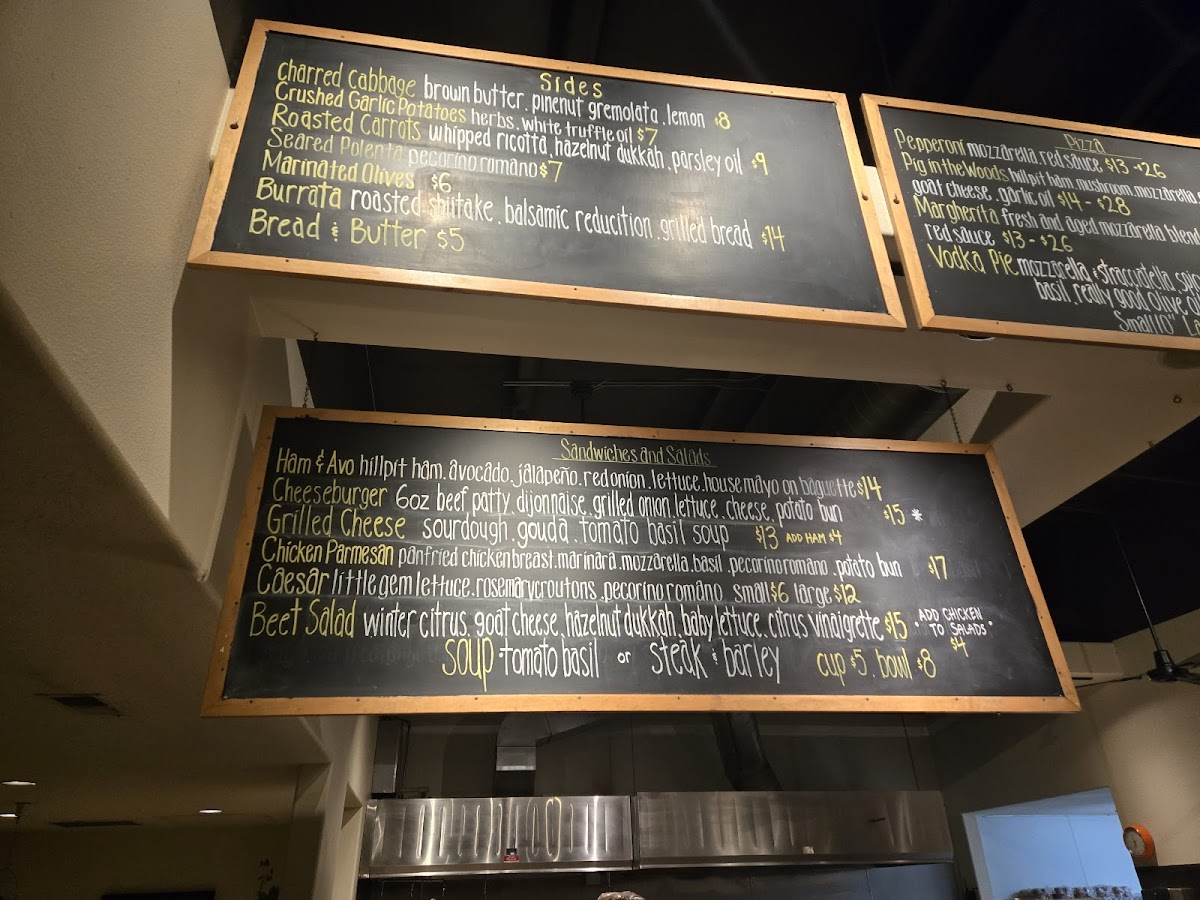 Sides
Charred Cabbage brown butter. pinenut gremolata. lemon $8
Crushed Garlic Potatoes herbs. white truffle oil $7
Roasted Carrots whipped ricotta, hazelnut dukkah, parsley oil $9
Seared Polenta pecorino romano $7
Marinated Olives $6
Burrata roasted shiitake. balsamic reducition. grilled bread $14
Bread & Butter $5
Pizza
Pepperoni mozzarella, red sauce $13 - $26
Pig in the Woods hillpit ham, mushroom, mozzarella,
goat cheese, garlic oil $14 - $28
Margherita fresh and aged mozzarella blend
red sauce $13 - $26
Vodka Pie mozzarella & stracciatella,
basil, really good olive
Small 10"
Sandwiches and Salads
Ham & Avo hillpit ham. avocado. jalapeño. red onion. lettuce. house mayo on baguette $14
Cheeseburger 6oz beef patty, dijonnaise, grilled onion, lettuce, cheese, potato bun $15 *
Grilled Cheese sourdough. gouda. tomato basil soup $13 ADD HAM $4
Chicken Parmesan panfried chicken breast. marinara. mozzarella. basil. pecorino romano. potato bun $17
Caesar little gem lettuce. rosemary croutons. pecorino romano small $6 large $12
Beet Salad winter citrus, goat cheese, hazelnut dukkah, baby lettuce, citrus vinaigrette $15
• ADD CHICKEN
TO SALADS •
$4
Soup tomato basil or steak & barley cup $5. bowl $8